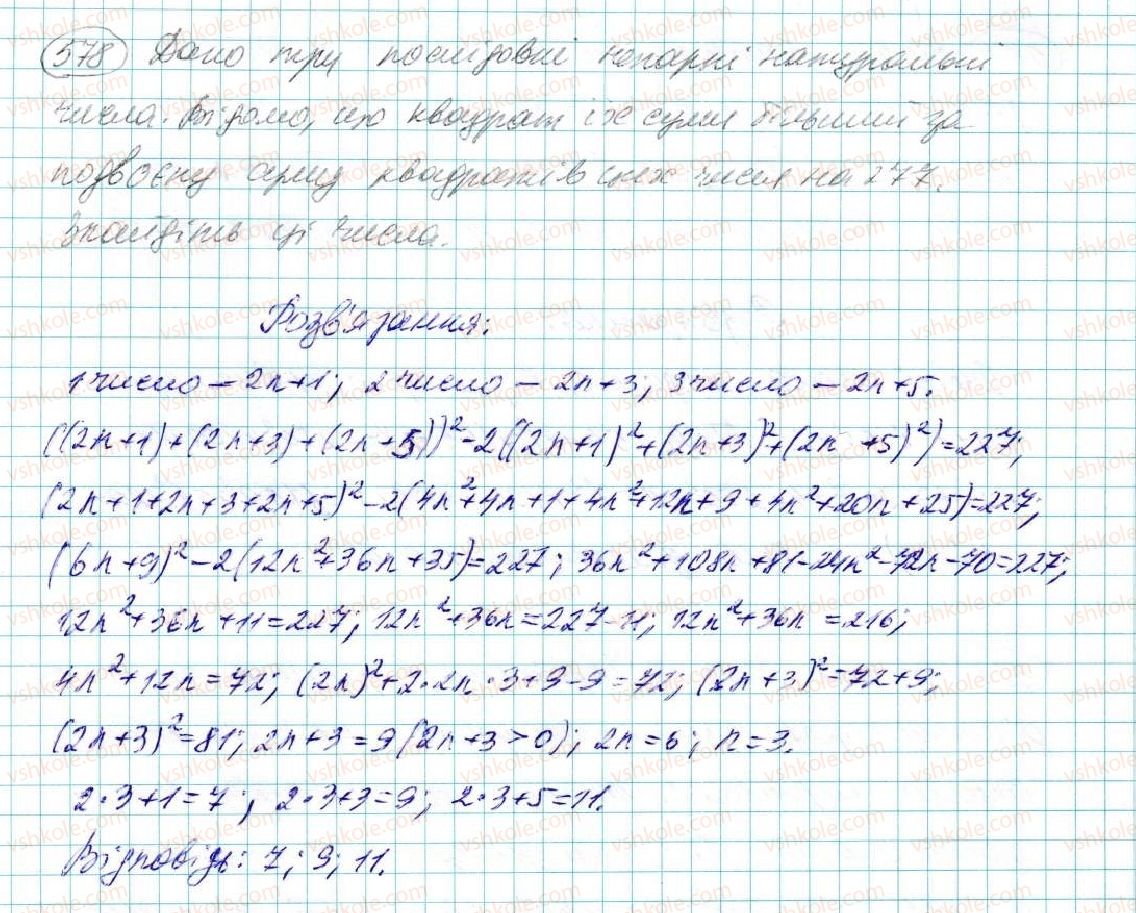 578 Дано три послідовні непарні натуральні
числа. Відомо, що квадрат їх суми більший за
подвоєну суму квадратів цих чисел на 277.
Знайдіть ці числа.
Розв'язання:
1 число – 2n+1; 2 число – 2n+3; 3 число – 2n+5.
((2n+1)+(2n+3)+(2n+5))²-2((2n+1)²+(2n+3)²+(2n+5)²)=227;
(2n+1+2n+3+2n+5)²-2(4n²+4n+1+4n²+12n+9+4n²+20n+25)=227;
(6n+9)²-2(12n²+36n+35)=227; 36n²+108n+81-24n²-72n-70=227;
12n²+36n+11=227; 12n²+36n=227-11; 12n²+36n=216;
4n²+12n=72; (2n)²+2·2n·3+9-9=72; (2n+3)²=72+9;
(2n+3)²=81; 2n+3=9 (2n+3>0); 2n=6; n=3.
2·3+1=7; 2·3+3=9; 2·3+5=11.
Відповідь: 7; 9; 11.